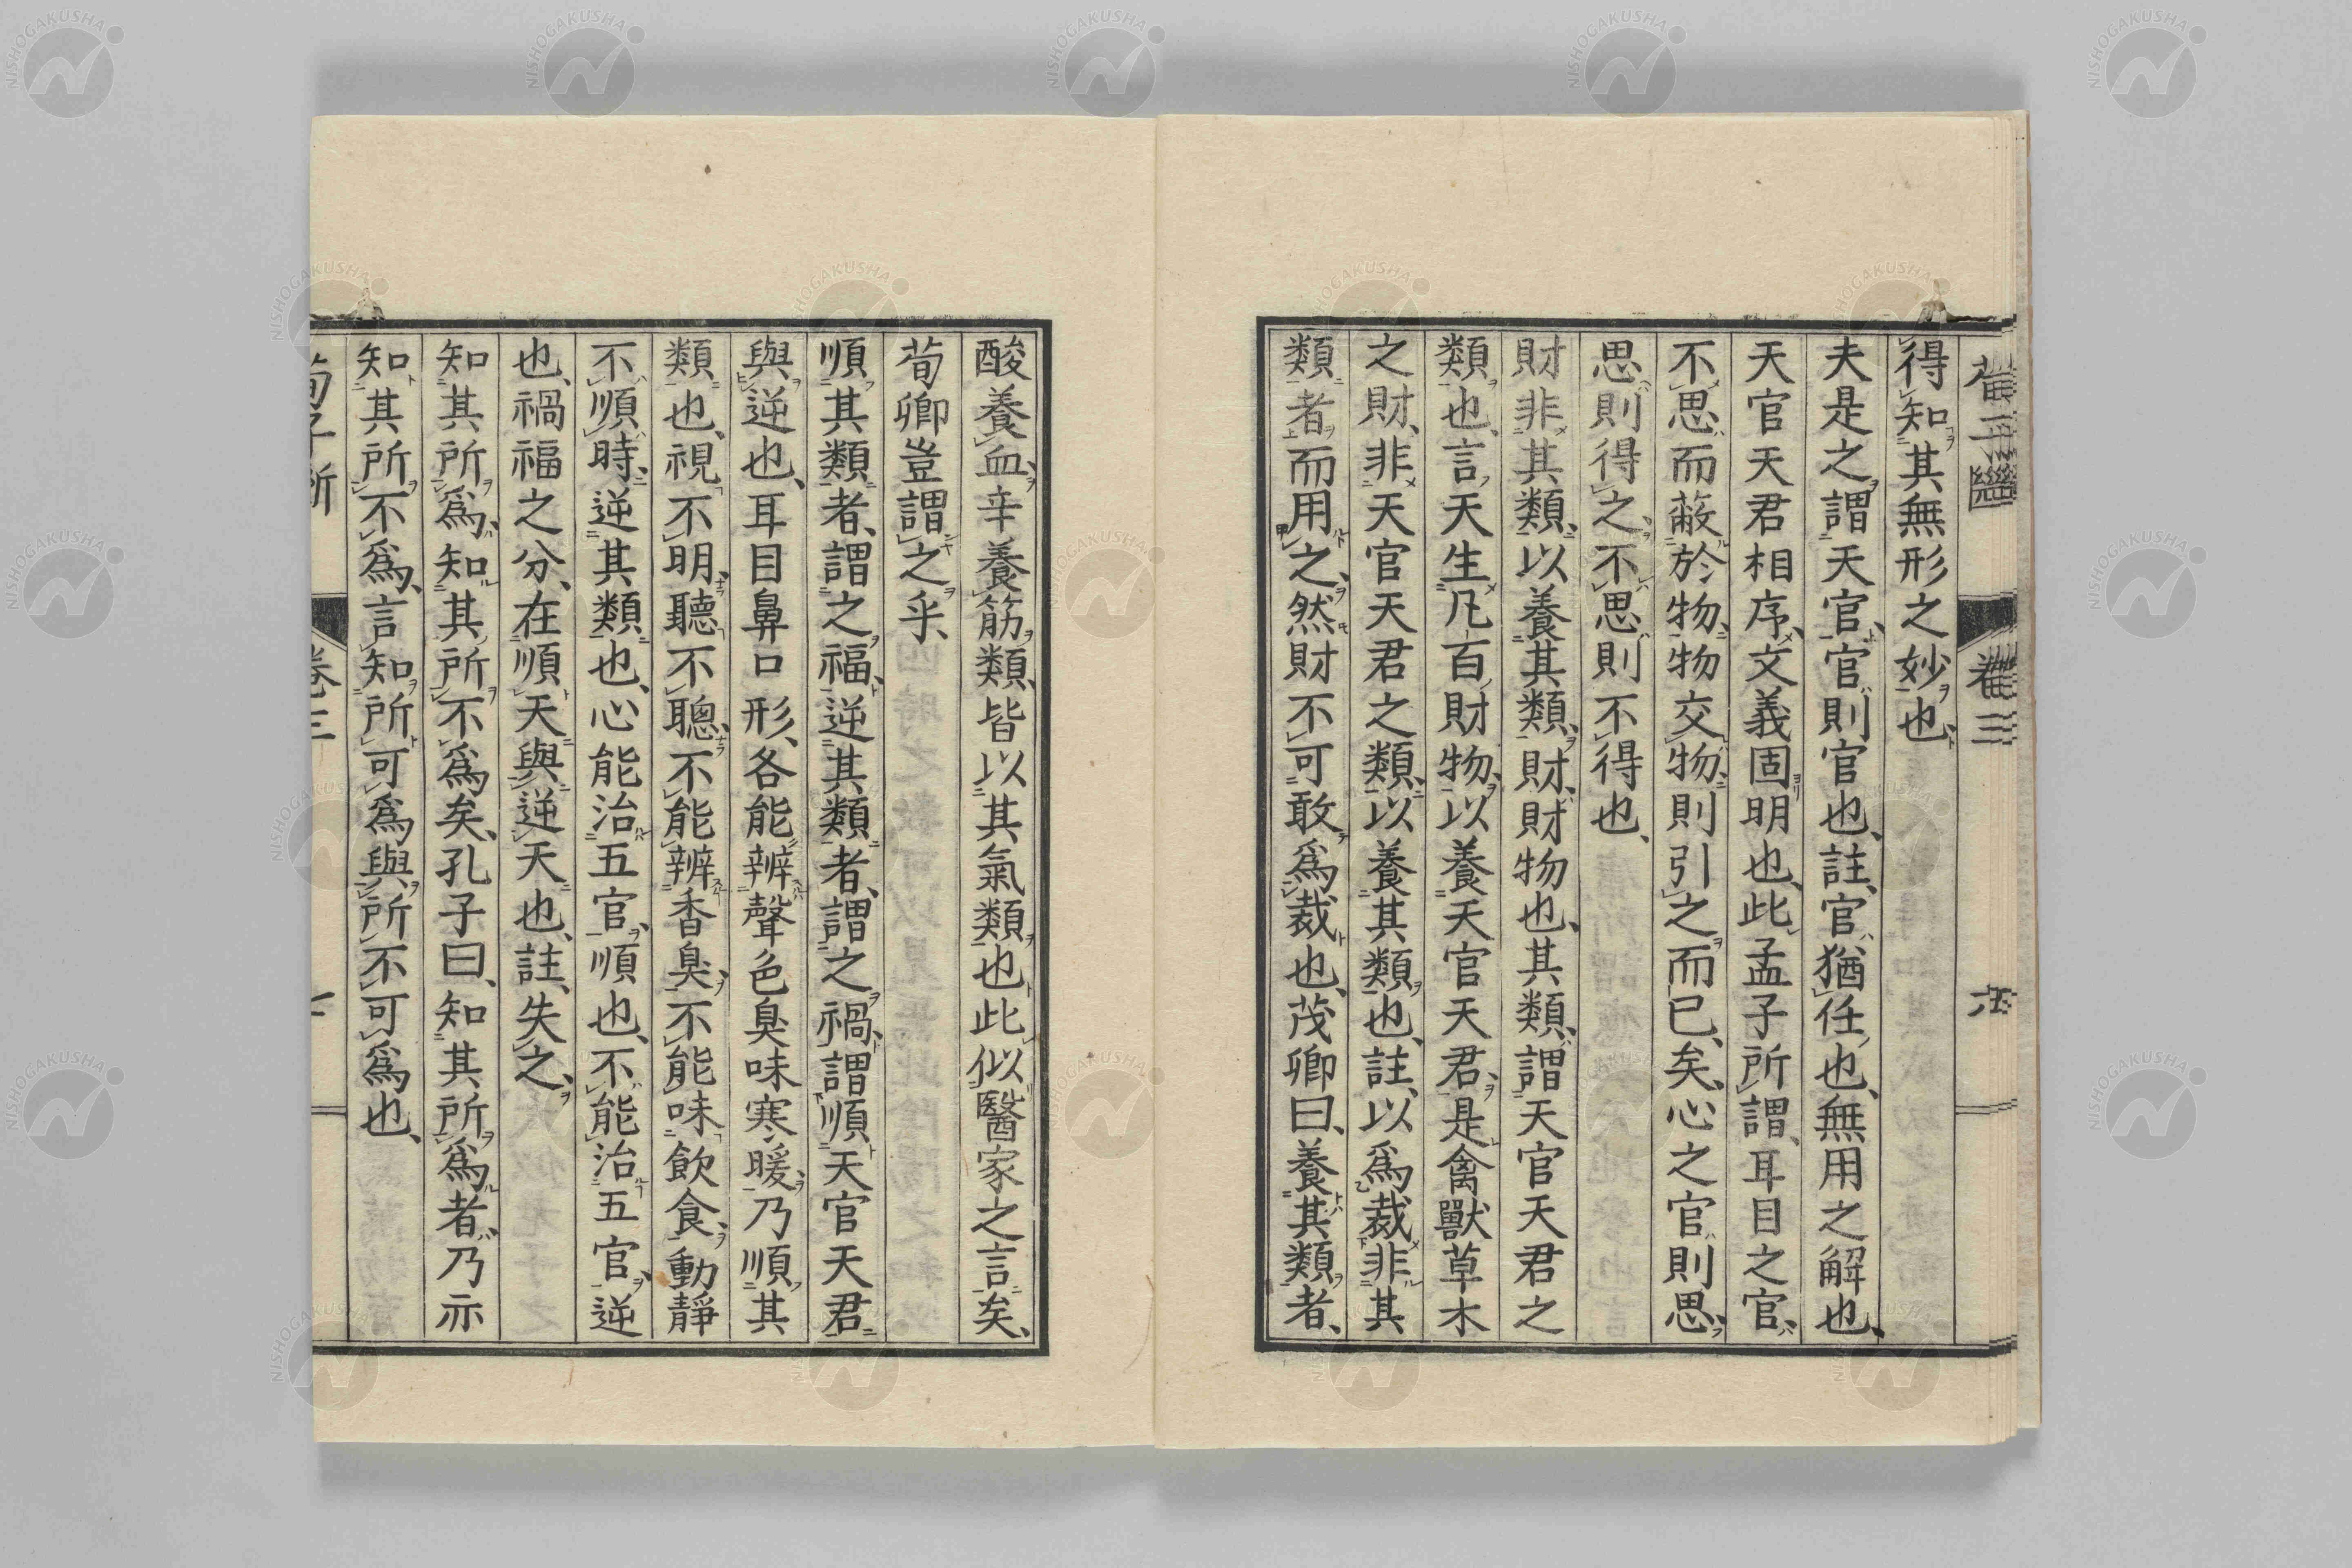 得知其無形之妙也、
夫是之謂天官、官則官也、註、官猶任也、無用之解也、
天官天君相序、文義固明也、此孟子所謂、耳目之官、
不思而蔽於物、物交物、則引之而已矣、心之官則思、
思則得之、不思則不得也、
財非其類、以養其類、財、財物也、其類、謂天官天君之
類也、言、天生凡百財物、以養天官天君、是禽獸草木
之財、非天官天君之類、以養其類也、註、以爲裁非其
類者而用之、然財不可敢爲裁也、茂卿曰、養其類者、
酸養血、辛養筋類、皆以其氣類也、此似醫家之言矣、
荀卿豈謂之乎、
順其類者、謂之福、逆其類者、謂之禍、謂順天官天君
與逆也、耳目鼻口形、各能辨聲色臭味寒暖、乃順其
類也、視不明、聽不聰、不能辨香臭、不能味飲食、動靜
不順時、逆其類也、心能治五官、順也、不能治五官、逆
也、禍福之分、在順天與逆天也、註、失之、
知其所爲、知其所不爲矣、孔子曰、知其所爲者、乃亦
知其所不爲、言知所可爲與所不可爲也、
卷三
NISHOGAKUSHA